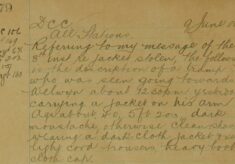 79
DCC 9 June
All Stations
Referring to my message of the
8th inst re jacket stolen, the following
is the description of a tramp
who was seen going towards
Welwyn about 12.30pm yesterday
carrying a jacket on his arm
Age about 40, 5ft 2 or 3, dark
moustache otherwise clean shaven
wearing a dark cloth jacket &
light cord trousers heavy boots
cloth cap.